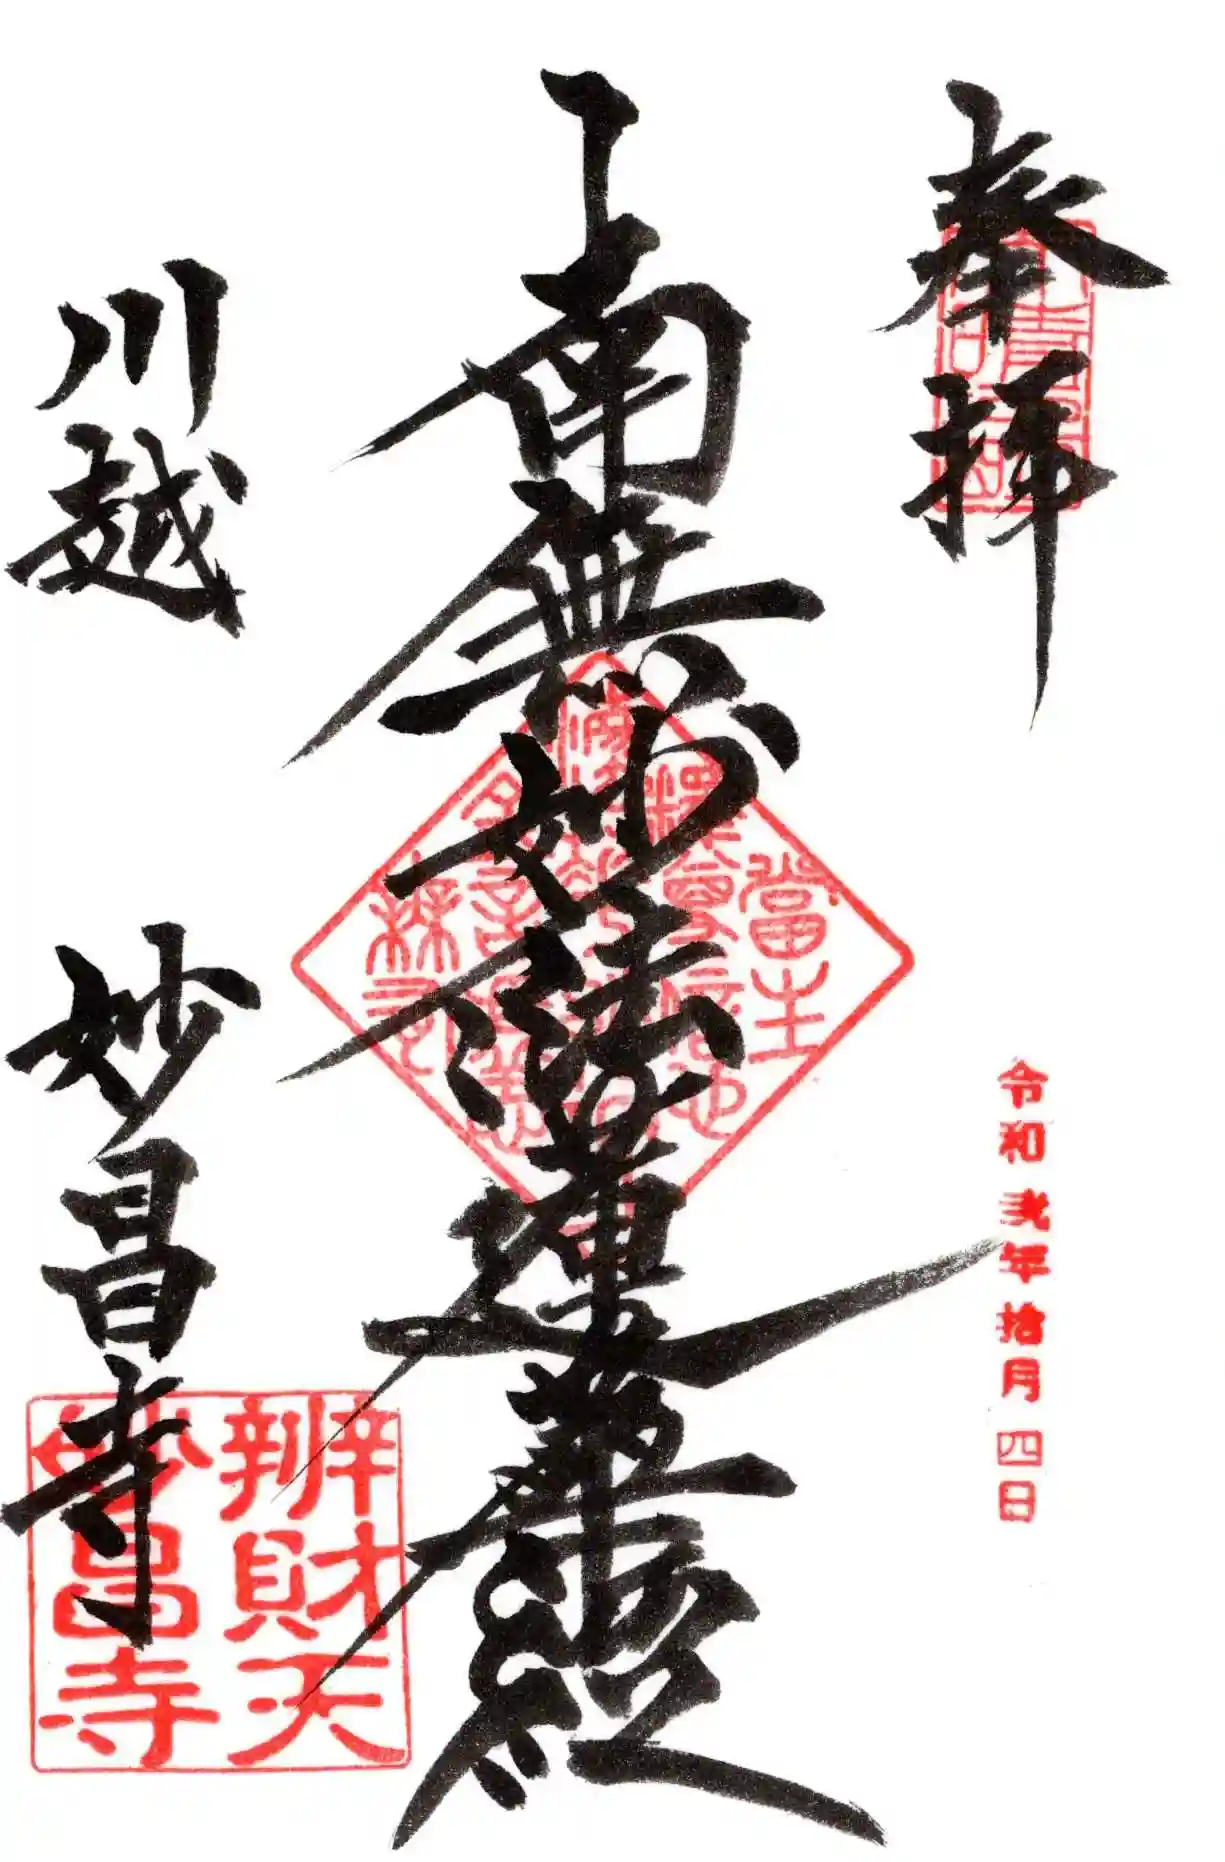 奉拝
令和弐年拾月四日
南無妙法蓮華経
川越
妙昌寺
辨財天
妙昌寺
當主